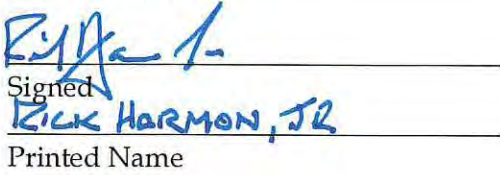 Signed
RICK HARMON, JR
Printed Name